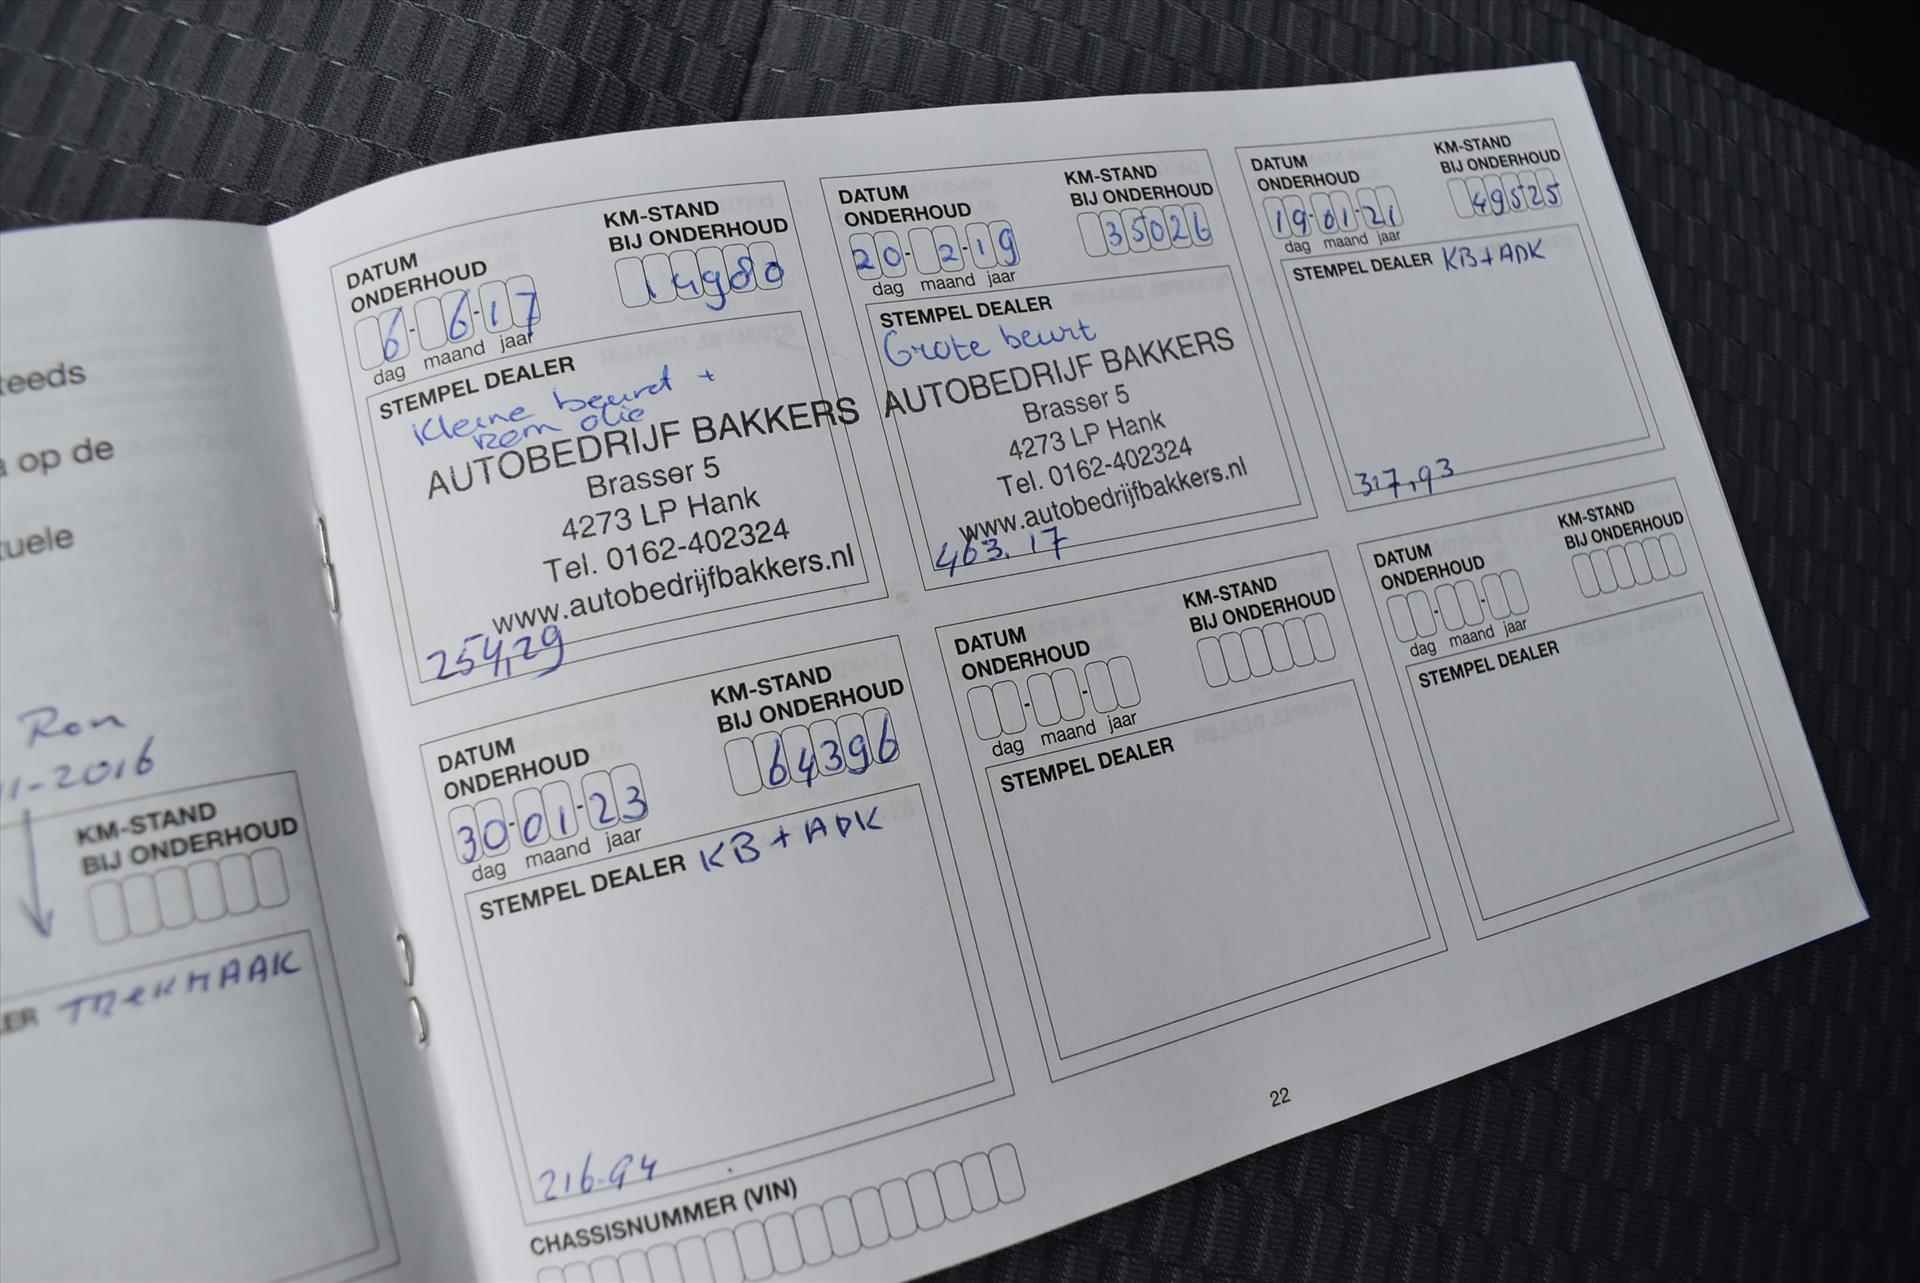 teeds
op de
tuele
Ron
11-2016
KM-STAND
BIJ ONDERHOUD
TREKHAAK
DATUM
ONDERHOUD
KM-STAND
BIJ ONDERHOUD
6-6-17
14980
dag maand jaar
STEMPEL DEALER
Kleine beurt +
Rem olie
AUTOBEDRIJF BAKKERS
Brasser 5
4273 LP Hank
Tel. 0162-402324
www.autobedrijfbakkers.nl
254,29
DATUM
ONDERHOUD
KM-STAND
BIJ ONDERHOUD
20-2-19
35026
dag maand jaar
STEMPEL DEALER
Grote beurt
AUTOBEDRIJF BAKKERS
Brasser 5
4273 LP Hank
Tel. 0162-402324
www.autobedrijfbakkers.nl
463.17
DATUM
ONDERHOUD
KM-STAND
BIJ ONDERHOUD
19-01-21
49525
dag maand jaar
STEMPEL DEALER KB+ADK
317,93
DATUM
ONDERHOUD
KM-STAND
BIJ ONDERHOUD
30-01-23
64396
dag maand jaar
STEMPEL DEALER KB + ADK
216.94
DATUM
ONDERHOUD
KM-STAND
BIJ ONDERHOUD
dag maand jaar
STEMPEL DEALER
DATUM
ONDERHOUD
KM-STAND
BIJ ONDERHOUD
dag maand jaar
STEMPEL DEALER
CHASSISNUMMER (VIN)
22